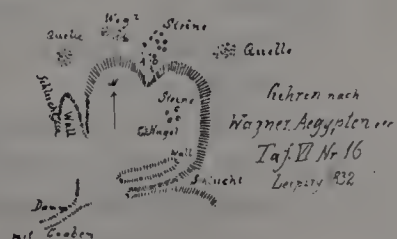 Quelle
Weg?
Steine
Quelle
A
B
Schlucht
Wall
Steine
Hügel
Wall
Schlucht
Damm
mit Graben
nach
Wagner, Aegypten
Taf. VI Nr 16
Leipzig 832